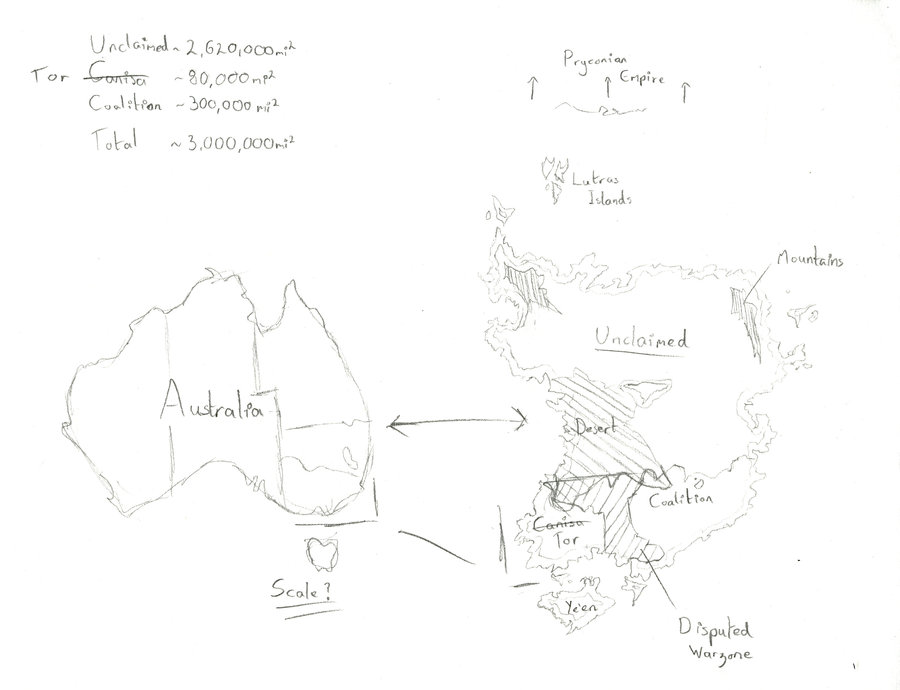 Unclaimed ~ 2,620,000mi²
Tor Canisa ~80,000mi²
Coalition ~300,000mi²
Total ~3,000,000mi²
Pryconian
Empire
Lutras
Islands
Mountains
Unclaimed
Australia
Desert
Coalition
Canisa
Tor
Scale?
Ye'en
Disputed
Warzone